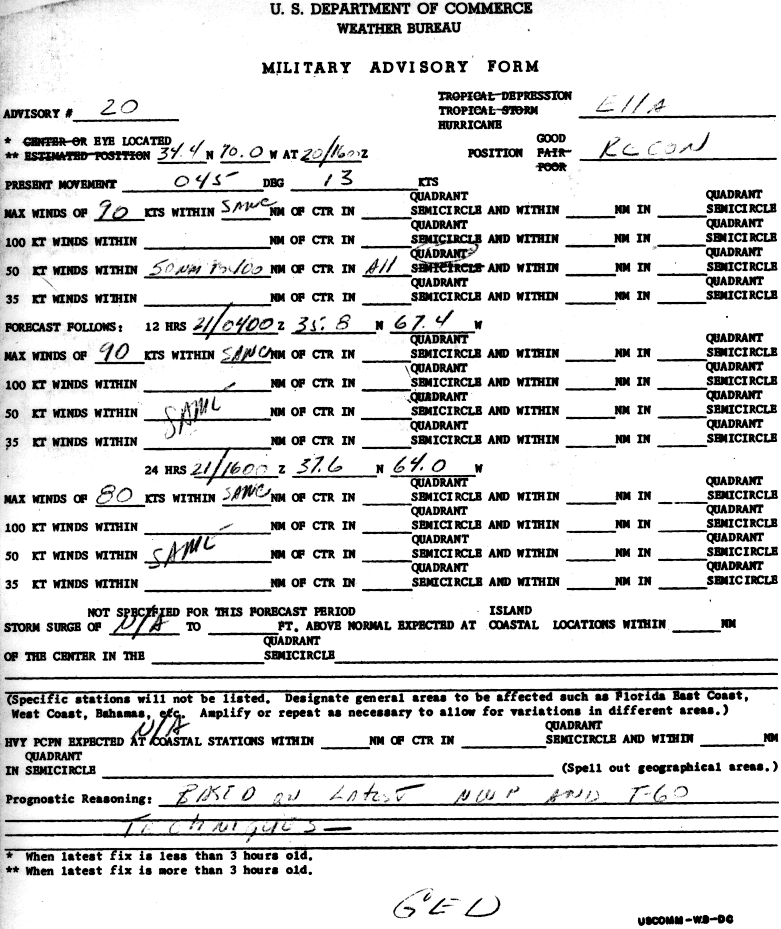 U. S. DEPARTMENT OF COMMERCE
WEATHER BUREAU
MILITARY ADVISORY FORM
TROPICAL DEPRESSION
ADVISORY # 20 TROPICAL STORM Ella
HURRICANE
* CENTER OR EYE LOCATED GOOD
** ESTIMATED POSITION 34.4 N 70.0 W AT 20/1600Z POSITION FAIR RECON
POOR
PRESENT MOVEMENT 045 DEG 13 KTS
QUADRANT QUADRANT
MAX WINDS OF 90 KTS WITHIN SAME NM OF CTR IN SEMICIRCLE AND WITHIN NM IN SEMICIRCLE
QUADRANT QUADRANT
100 KT WINDS WITHIN NM OF CTR IN SEMICIRCLE AND WITHIN NM IN SEMICIRCLE
QUADRANT QUADRANT
50 KT WINDS WITHIN 50NM TO 100 NM OF CTR IN All SEMICIRCLE AND WITHIN NM IN SEMICIRCLE
QUADRANT QUADRANT
35 KT WINDS WITHIN NM OF CTR IN SEMICIRCLE AND WITHIN NM IN SEMICIRCLE
FORECAST FOLLOWS: 12 HRS 21/0400 Z 35.8 N 67.4 W
QUADRANT QUADRANT
MAX WINDS OF 90 KTS WITHIN SAME NM OF CTR IN SEMICIRCLE AND WITHIN NM IN SEMICIRCLE
QUADRANT QUADRANT
100 KT WINDS WITHIN NM OF CTR IN SEMICIRCLE AND WITHIN NM IN SEMICIRCLE
QUADRANT QUADRANT
50 KT WINDS WITHIN SAME NM OF CTR IN SEMICIRCLE AND WITHIN NM IN SEMICIRCLE
QUADRANT QUADRANT
35 KT WINDS WITHIN NM OF CTR IN SEMICIRCLE AND WITHIN NM IN SEMICIRCLE
24 HRS 21/1600 Z 37.6 N 64.0 W
QUADRANT QUADRANT
MAX WINDS OF 80 KTS WITHIN SAME NM OF CTR IN SEMICIRCLE AND WITHIN NM IN SEMICIRCLE
QUADRANT QUADRANT
100 KT WINDS WITHIN NM OF CTR IN SEMICIRCLE AND WITHIN NM IN SEMICIRCLE
QUADRANT QUADRANT
50 KT WINDS WITHIN SAME NM OF CTR IN SEMICIRCLE AND WITHIN NM IN SEMICIRCLE
QUADRANT QUADRANT
35 KT WINDS WITHIN NM OF CTR IN SEMICIRCLE AND WITHIN NM IN SEMICIRCLE
NOT SPECIFIED FOR THIS FORECAST PERIOD ISLAND
STORM SURGE OF N/A TO FT. ABOVE NORMAL EXPECTED AT COASTAL LOCATIONS WITHIN NM
QUADRANT
OF THE CENTER IN THE SEMICIRCLE
(Specific stations will not be listed. Designate general areas to be affected such as Florida East Coast,
West Coast, Bahamas, etc. Amplify or repeat as necessary to allow for variations in different areas.)
N/A QUADRANT
HVY PCPN EXPECTED AT COASTAL STATIONS WITHIN NM OF CTR IN SEMICIRCLE AND WITHIN NM
QUADRANT
IN SEMICIRCLE (Spell out geographical areas.)
Prognostic Reasoning: BASED on Latest NWP AND T-60
TECHNIQUES—
* When latest fix is less than 3 hours old.
** When latest fix is more than 3 hours old.
GED
USCOMM-WB-DC